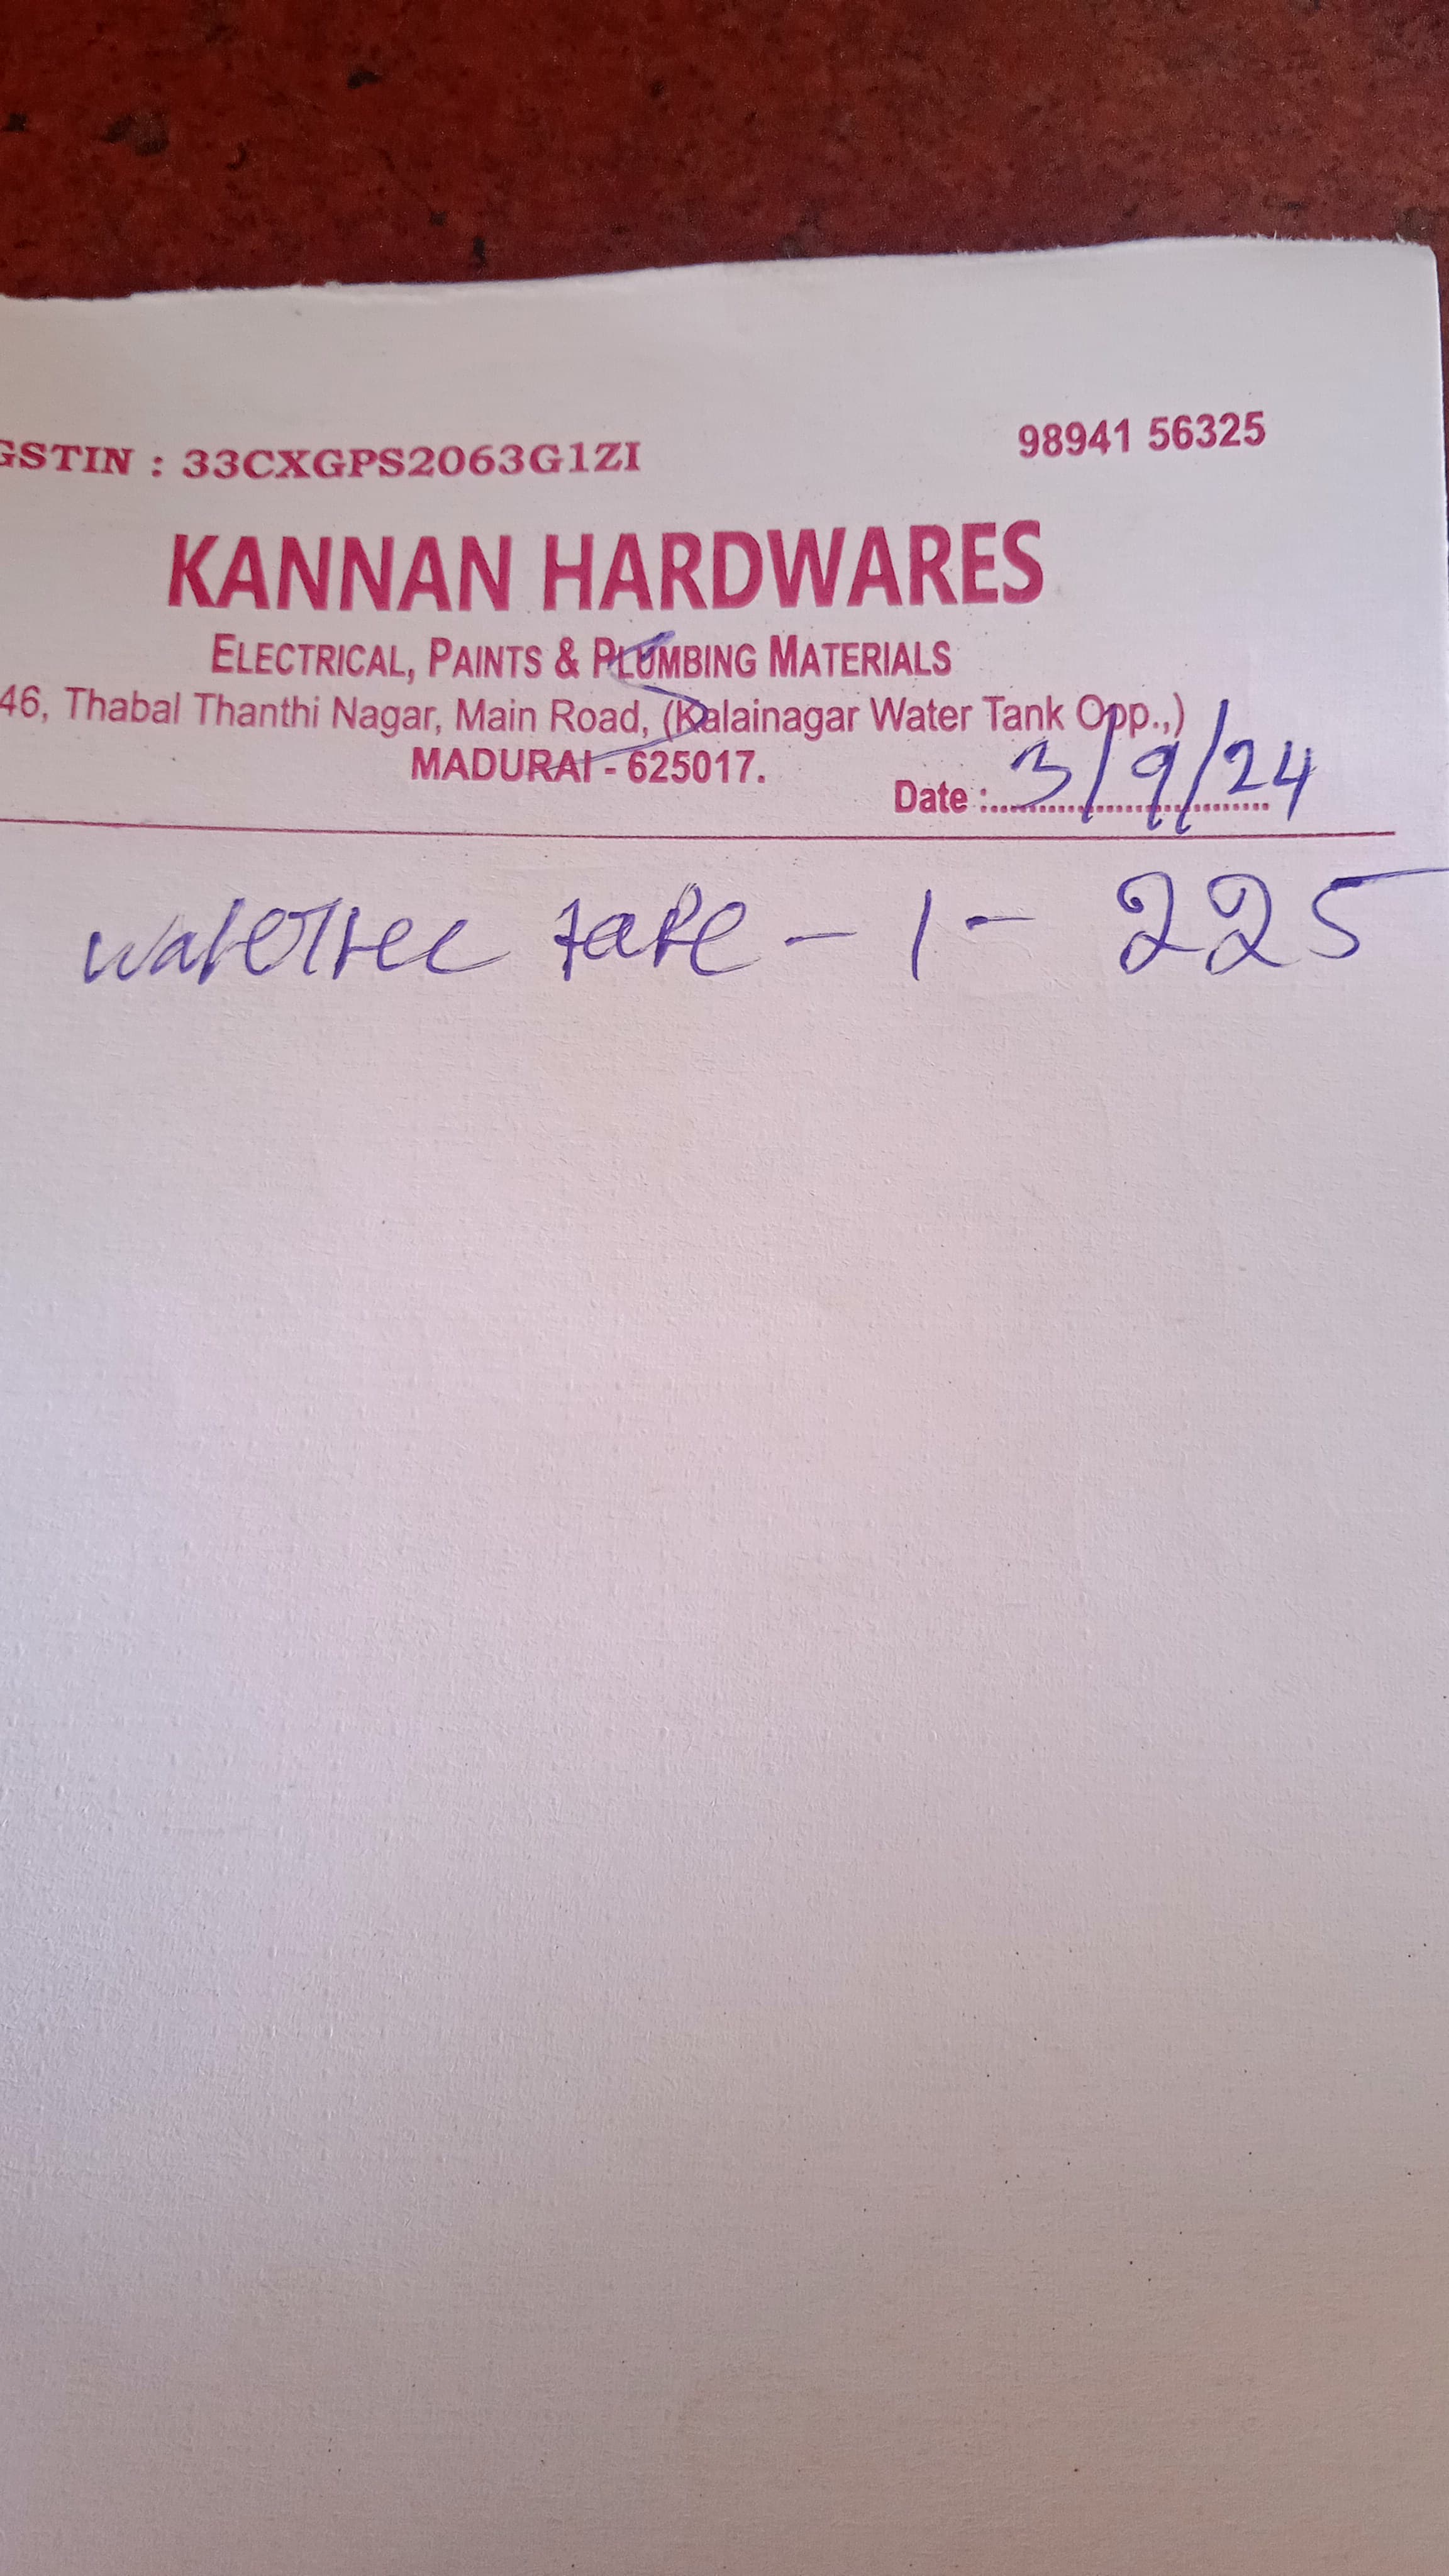 GSTIN : 33CXGPS2063G1ZI 98941 56325
KANNAN HARDWARES
ELECTRICAL, PAINTS & PLUMBING MATERIALS
46, Thabal Thanthi Nagar, Main Road, (Kalainagar Water Tank Opp.,)
MADURAI - 625017.
Date : 3/9/24
tape - 1 - 225